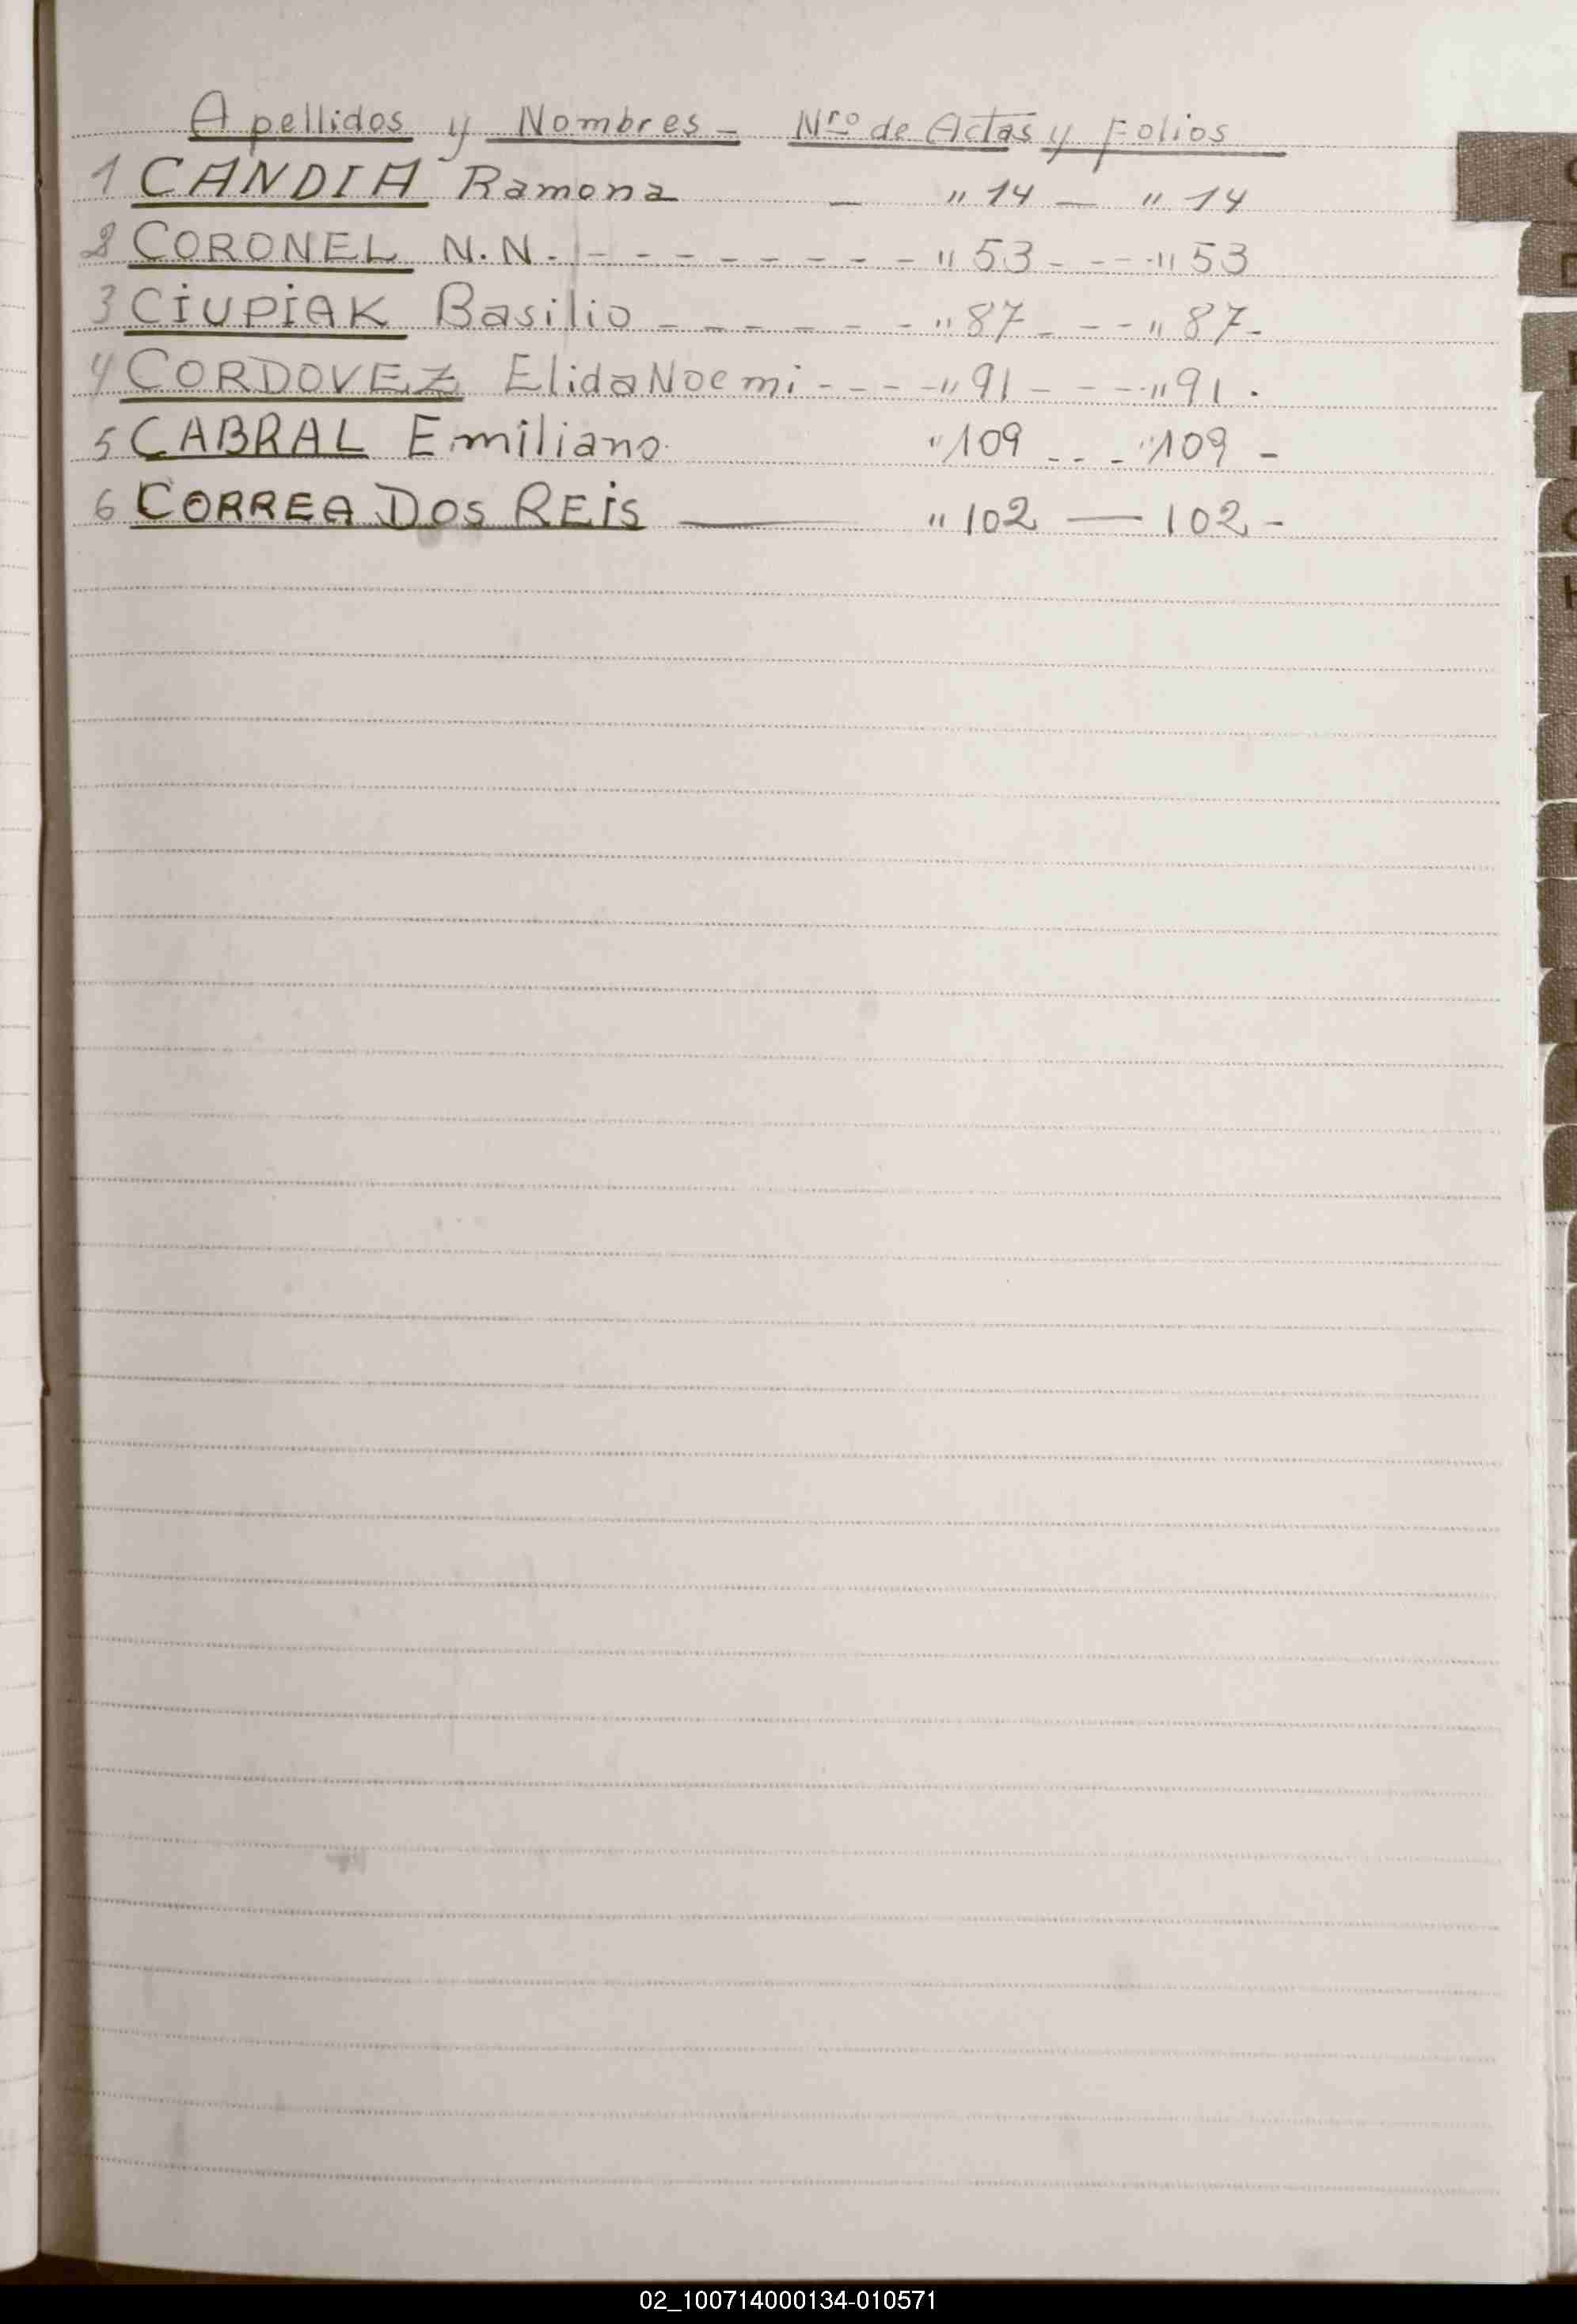 Apellidos y Nombres - Nro de Actas y Folios
1 CANDIA Ramona - " 14 - " 14
2 CORONEL N.N. - - - - - - - - - " 53 - - - - " 53
3 CIUPIAK Basilio - - - - - - - " 87 - - - " 87 -
4 CORDOVEZ Elida Noemi - - - - " 91 - - - - " 91 .
5 CABRAL Emiliano " 109 - - - " 109 -
6 CORREA DOS REIS — " 102 — 102 -
C
D
G
H
02_100714000134-010571